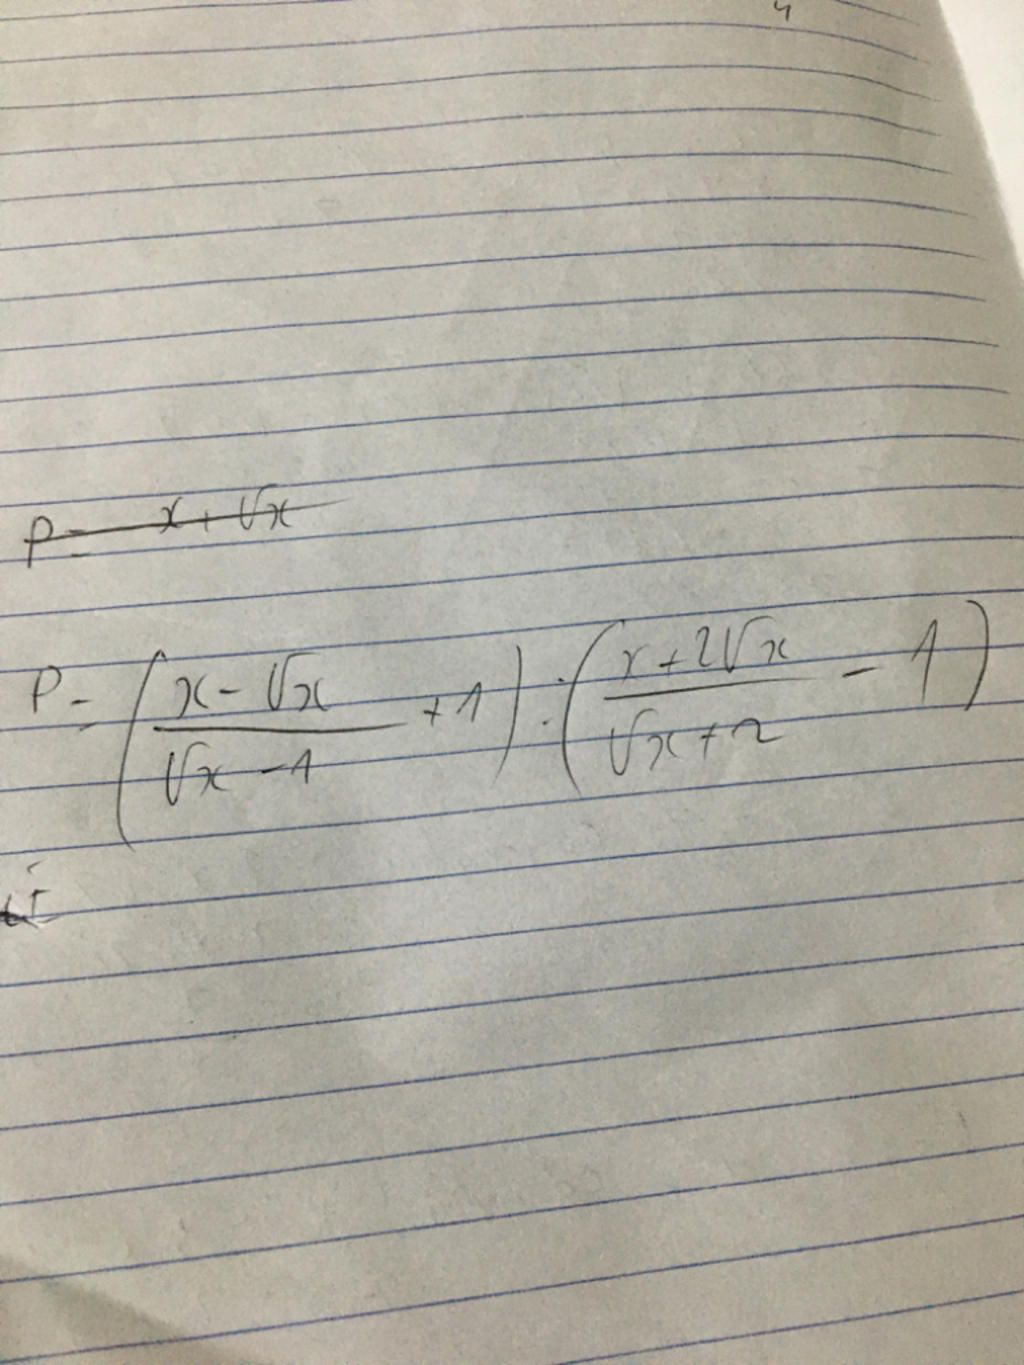 P = x + √x
P = ( (x - √x)/(√x - 1) + 1 ) : ( (x + 2√x)/(√x + 2) - 1 )